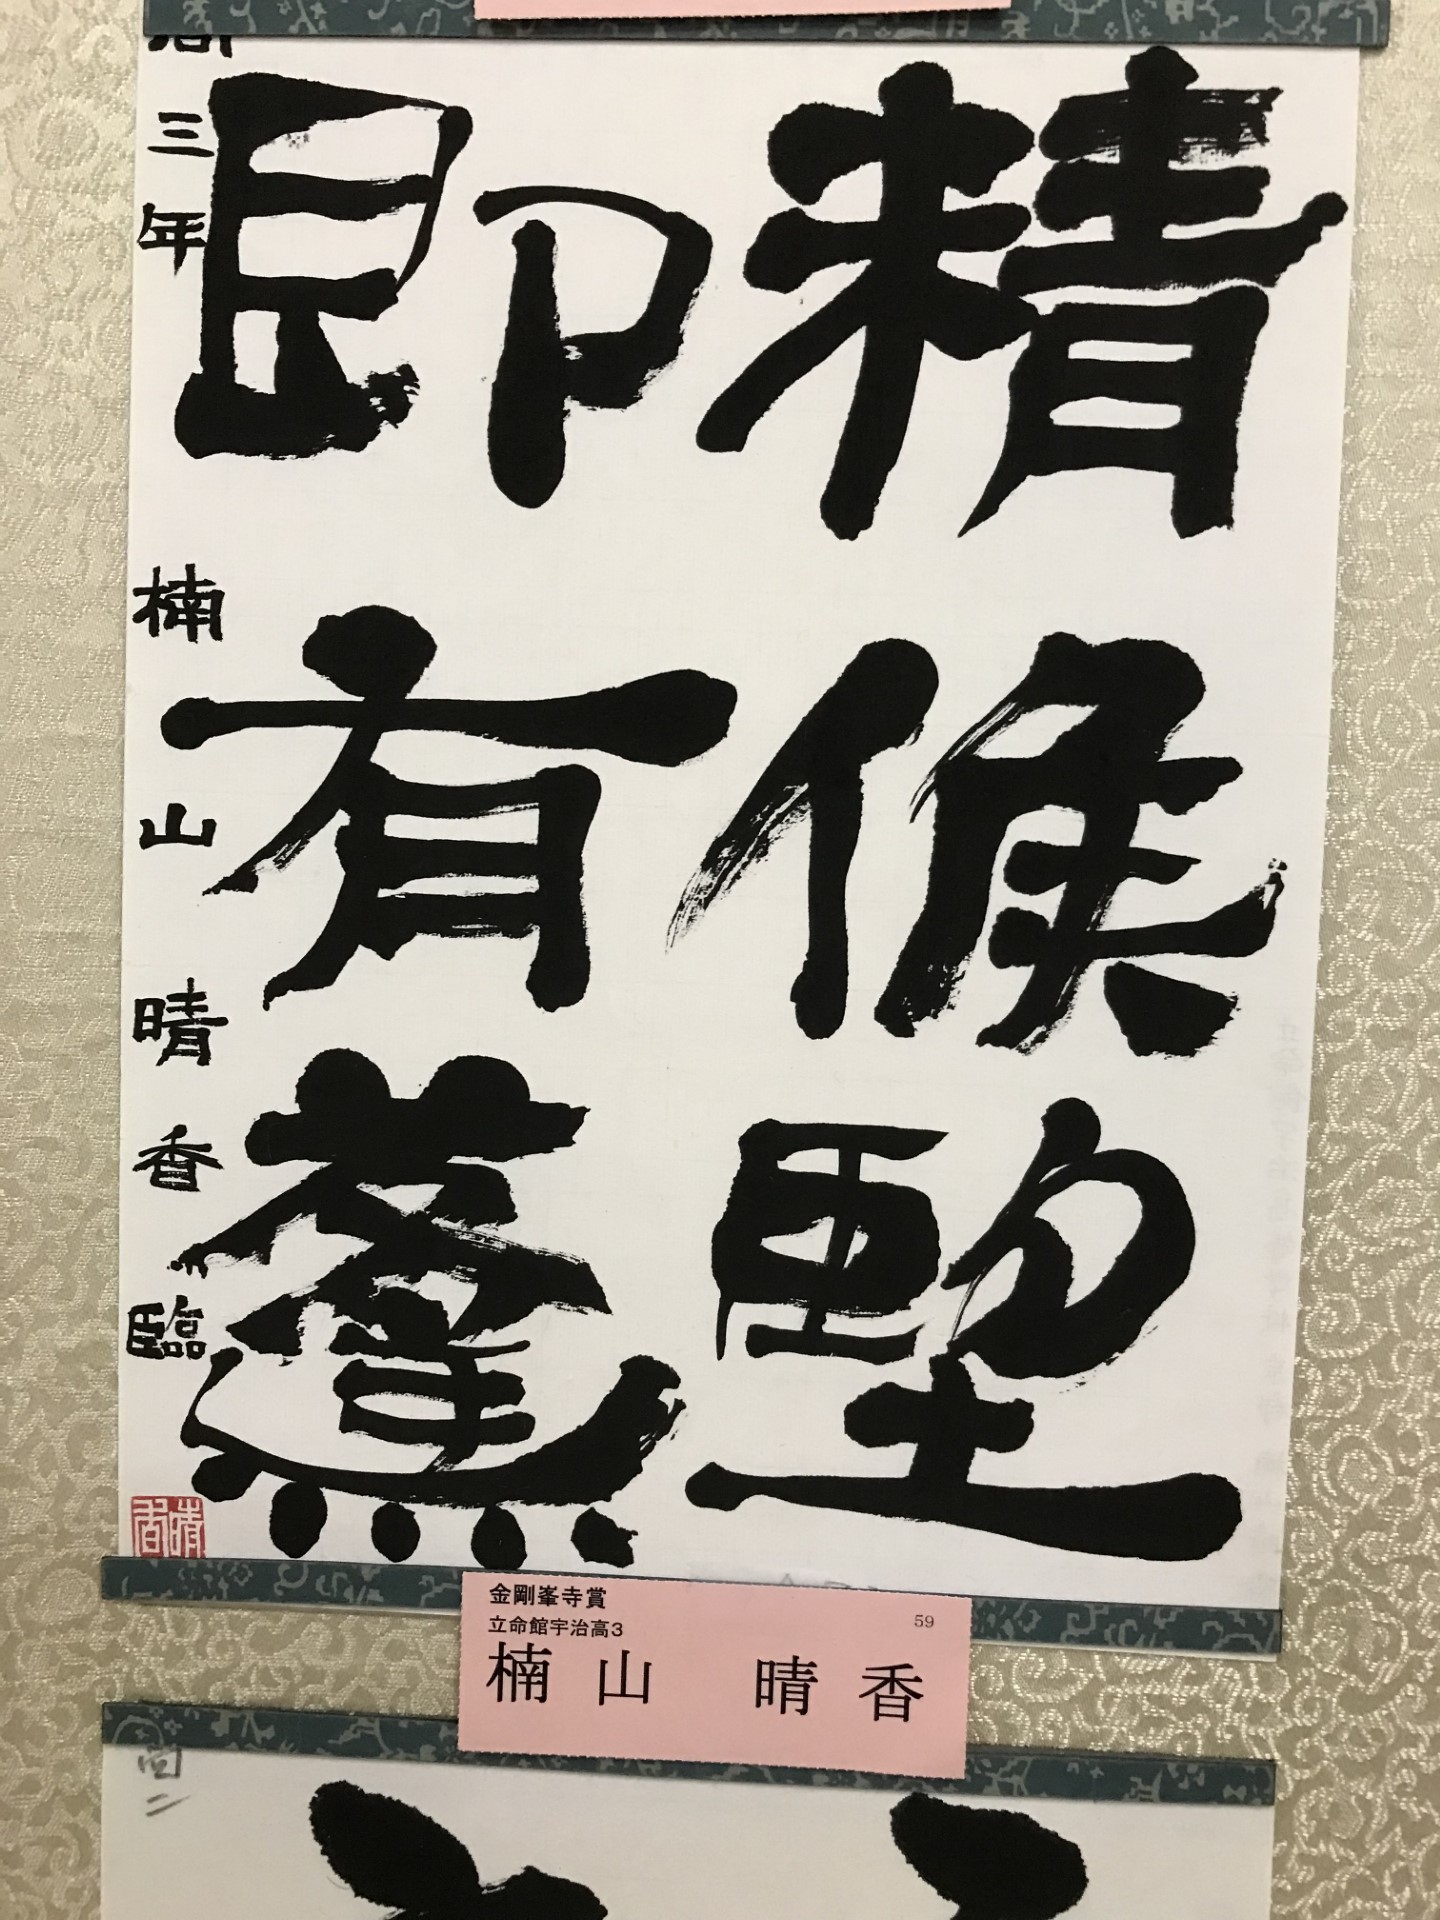 精候望
即有
三年 楠山晴香臨
晴香
金剛峯寺賞
59
立命館宇治高3
楠山 晴香
高二